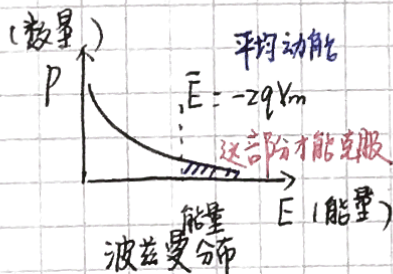 (数量)
P
平均动能
E = -2qVm
这部分才能克服
能量
E (能量)
波兹曼分布